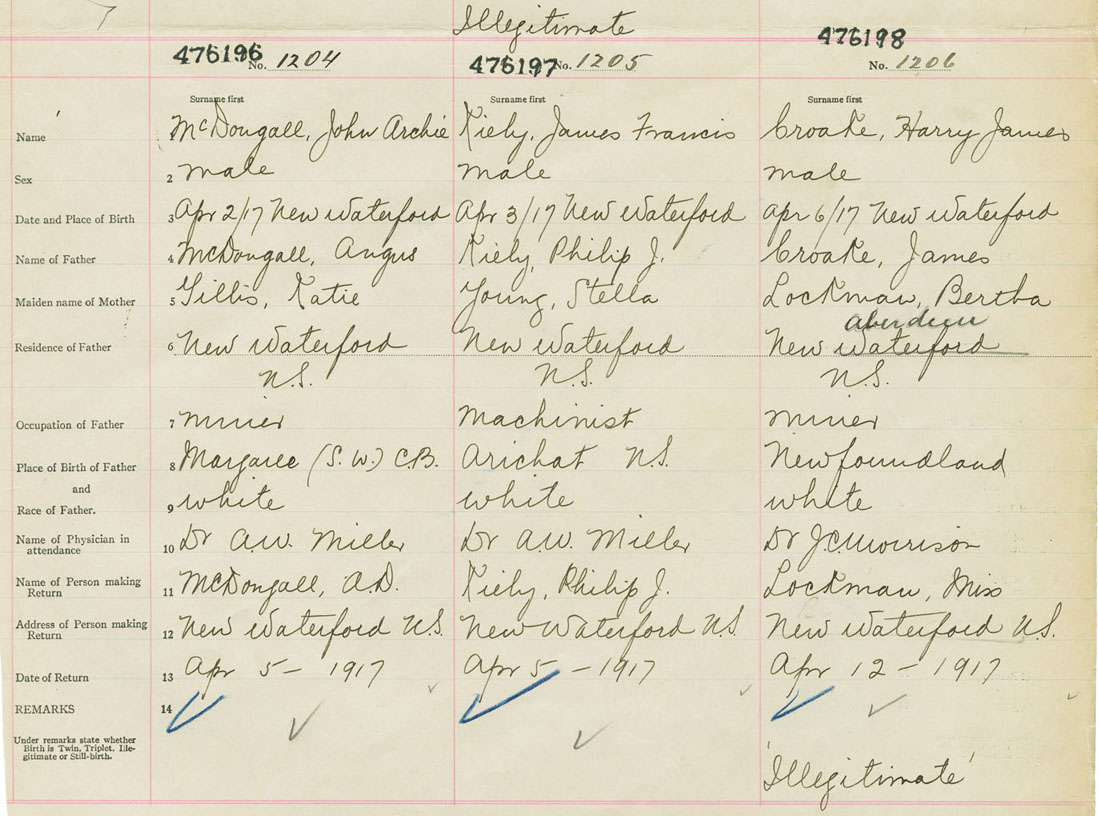 Illegitimate
476196 No. 1204 476197 No. 1205 476198 No. 1206
Surname first Surname first Surname first
Name 1 McDougall, John Archie Kiely, James Francis Croake, Harry James
Sex 2 male male male
Date and Place of Birth 3 Apr 2/17 New Waterford Apr 3/17 New Waterford Apr 6/17 New Waterford
Name of Father 4 McDougall, Angus Kiely, Philip J. Croake, James
Maiden name of Mother 5 Gillis, Katie Young, Stella Lockman, Bertha
Aberdeen
Residence of Father 6 New Waterford New Waterford New Waterford
N.S. N.S. N.S.
Occupation of Father 7 miner Machinist miner
Place of Birth of Father 8 Margaree (S.W.) C.B. Arichat N.S. Newfoundland
and
Race of Father. 9 white white white
Name of Physician in
attendance 10 Dr A.W. Miller Dr A.W. Miller Dr J.C. Morrison
Name of Person making
Return 11 McDougall, A.D. Kiely, Philip J. Lockman, Miss
Address of Person making
Return 12 New Waterford N.S. New Waterford N.S. New Waterford N.S.
Date of Return 13 Apr 5 - 1917 Apr 5 - 1917 Apr 12 - 1917
REMARKS 14
Under remarks state whether
Birth is Twin, Triplet, Ille-
gitimate or Still-birth.
'Illegitimate'